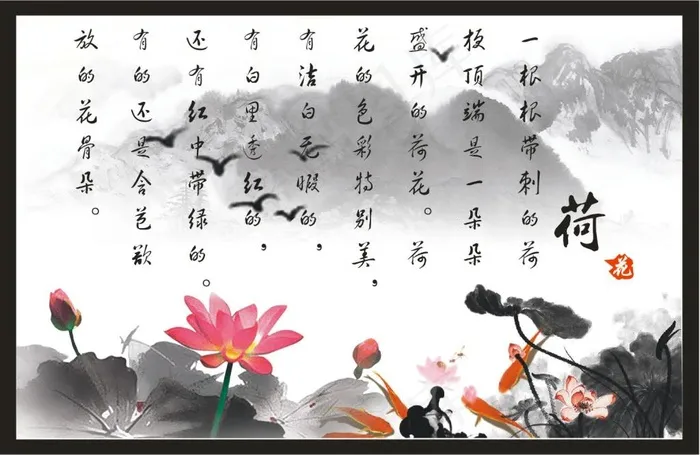 荷
花
一根根带刺的荷
梗顶端是一朵朵
盛开的荷花。荷
花的色彩特别美，
有洁白无暇的，
有白里透红的，
还有红中带绿的。
有的还是含苞欲
放的花骨朵。